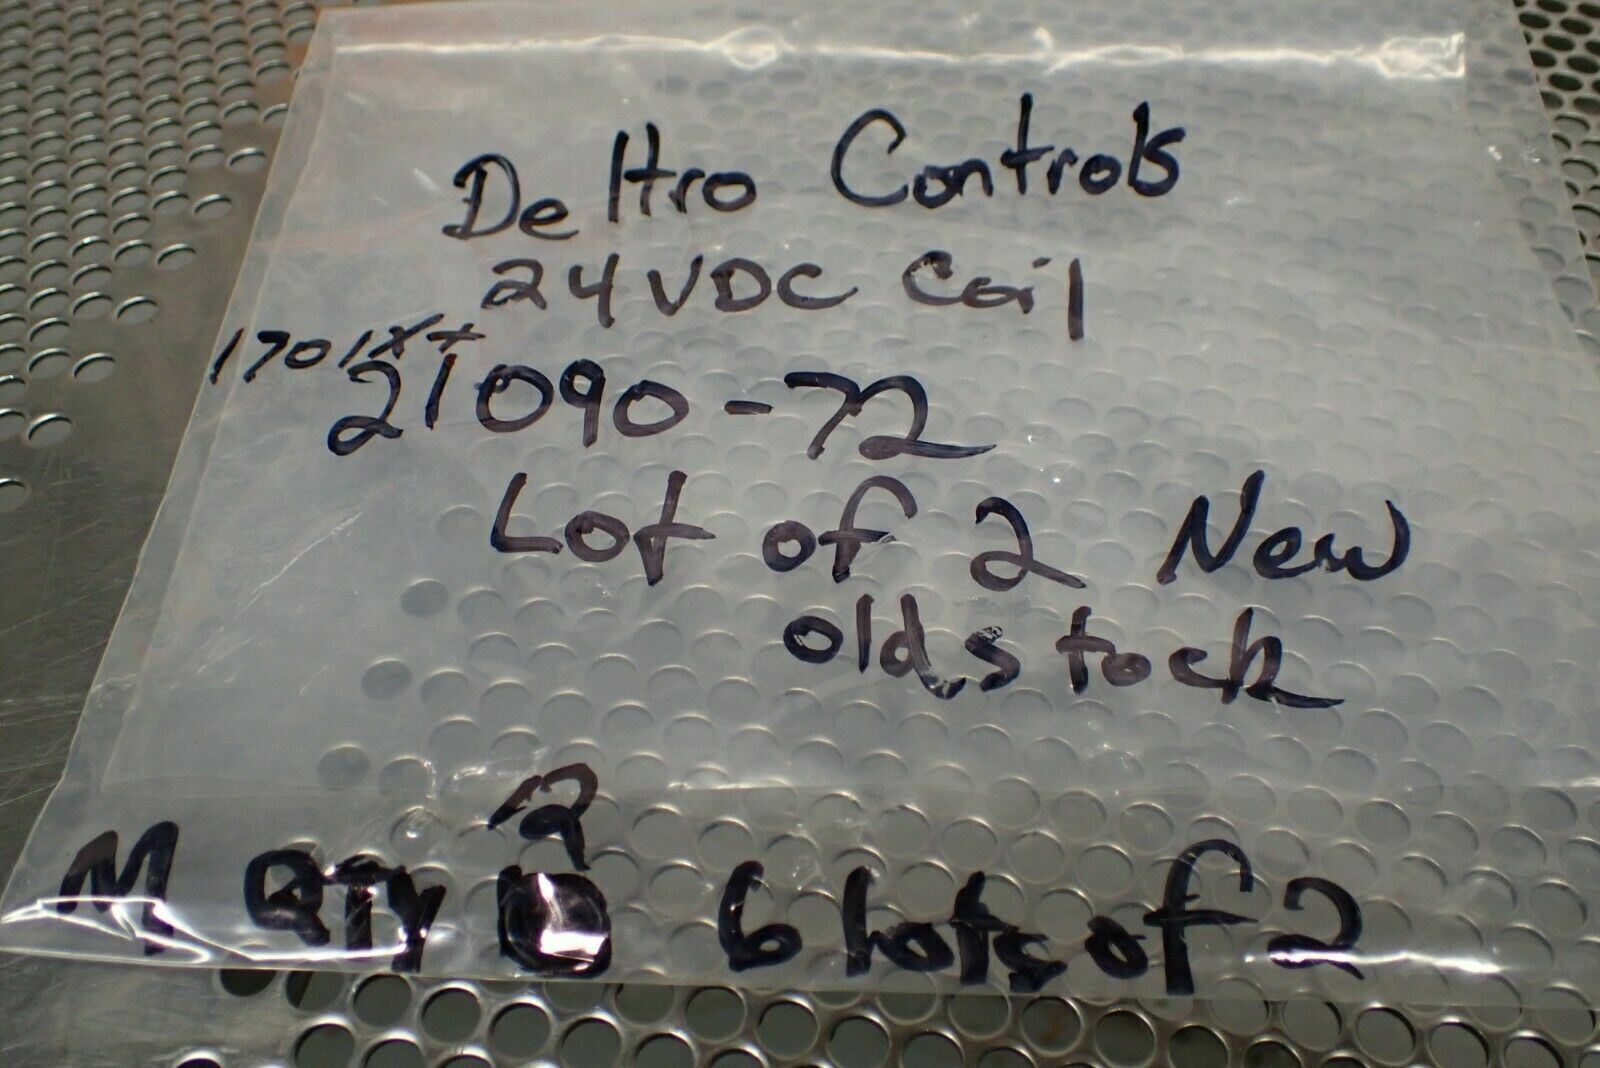 Deltro Controls
24 VDC Coil
21090-72
Lot of 2 New
old stock
2
M QTY 6 lots of 2